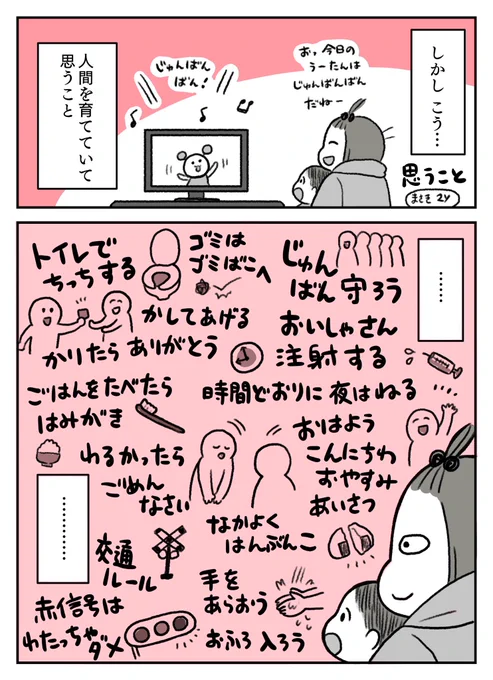 しかし こう…
おっ、今日の
うーたんは
じゅんばんばん
だねー
じゅんばん
ばん!
人間を育てていて
思うこと
思うこと
まさき 2y
……
じゅん
ばん 守ろう
ゴミは
ゴミばこへ
トイレで
ちっちする
かしてあげる
かりたら ありがとう
おいしゃさん
注射する
時間どおりに 夜はねる
ごはんをたべたら
はみがき
おはよう
こんにちわ
おやすみ
あいさつ
わるかったら
ごめん
なさい
…………
なかよく
はんぶんこ
交通
ルール
手を
あらおう
赤信号は
わたっちゃ
ダメ
おふろ 入ろう